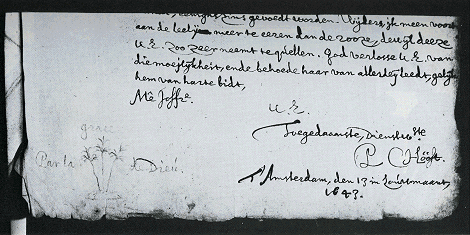 gevoedt worden. Wijders, ik meen voort
aan de leelje meer te eeren dan de rooze, dewijl deeze
U.E. zoo zeer neemt te quellen. God verlosse U.E. van
die moejlykheit, ende behoede haar van allerley leedt, gelijk
hem van harte bidt,
Me Joffre.
U.E.
Toegedaanste, Dienstw.ste
P C Hóóft.
T'Amsterdam, den 13 in Louwmaant
1643.
grace
Par la de Dieu.